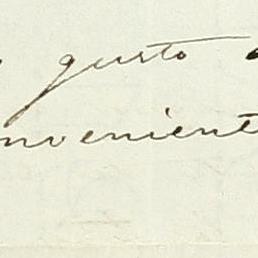 gusto
nvenient